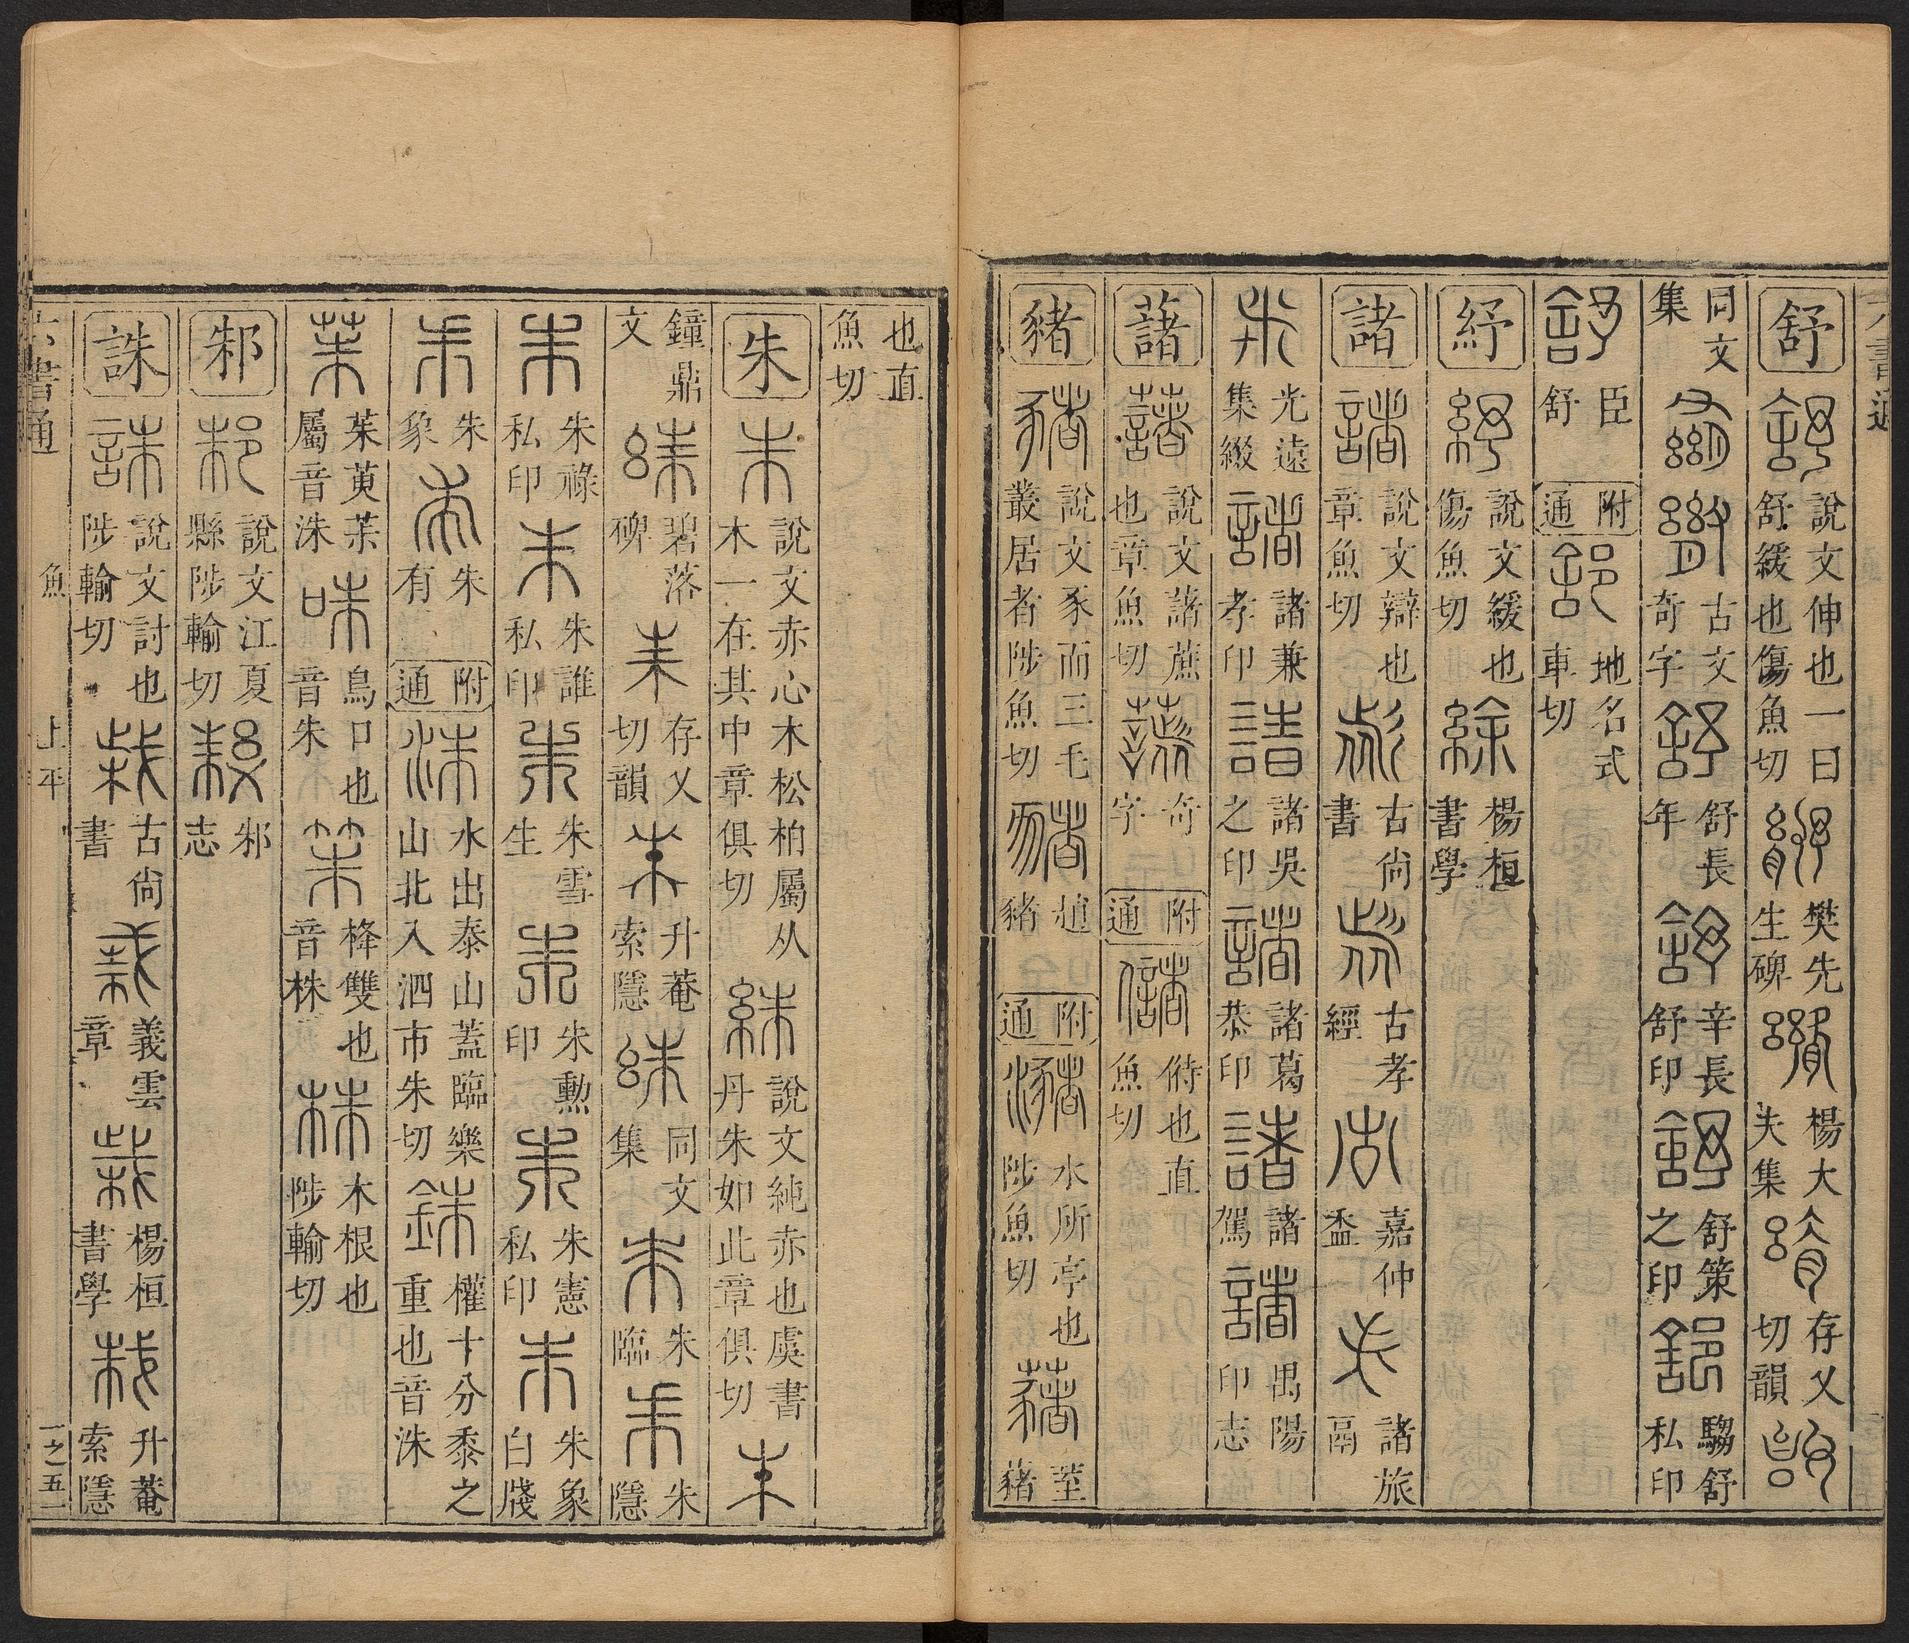 六書通
舒 說文伸也一曰舒緩也傷魚切 樊先生碑 楊大夫集 存乂切韻
同文集 古文奇字 舒長年 辛長舒印 舒策之印 騶舒私印
臣舒 附通 地名式車切
紓 說文緩也傷魚切 楊桓書學
諸 說文辯也章魚切 古尚書 古孝經 嘉仲盉 諸旅鬲
光遠集綴 諸兼孝印 諸吳之印 諸葛恭印 諸諸駕 禺陽印志
藷 說文藷蔗也章魚切 奇字 附通 偫也直魚切
豬 說文豕而三毛叢居者陟魚切 趙豬 附通 水所亭也陟魚切 荎藸
也直魚切
朱 說文赤心木松柏屬从木一在其中章俱切 說文純赤也虞書丹朱如此章俱切
鐘鼎文 碧落碑 存乂切韻 升菴索隱 同文集 朱臨 朱隱
朱祿私印 朱誰私印 朱雪生 朱勳印 朱憲私印 朱象白牋
朱象 朱有 附通 水出泰山蓋臨樂山北入泗市朱切 權十分黍之重也音洙
茱萸茱屬音洙 鳥口也音朱 栙雙也音株 木根也陟輸切
邾 說文江夏縣陟輸切 邾志
誅 說文討也陟輸切 古尚書 義雲章 楊桓書學 升菴索隱
六書通 魚 上平 一之五一